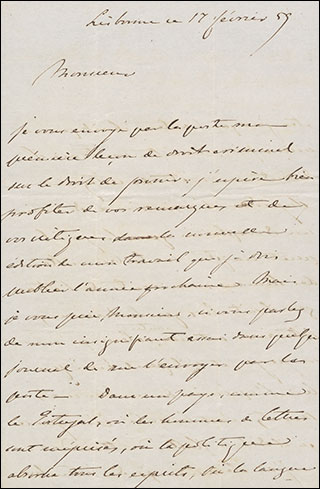 Lisbonne ce 17 février 59
Monsieur
je vous envoye par la poste ma
première leçon de droit criminel
sur le droit de punir; j'espère bien
profiter de vos remarques et de
vos critiques dans la nouvelle
édition de mon travail que je dois
publier l'année prochaine. Mais
je vous prie Monsieur si vous parlez
de mon insignifiant essai dans quelque
journal de me l'envoyer par la
poste — Dans un pays, comme
le Portugal, où les hommes de lettres
sont méprisés, où la politique
absorbe tous les esprits, où la langue